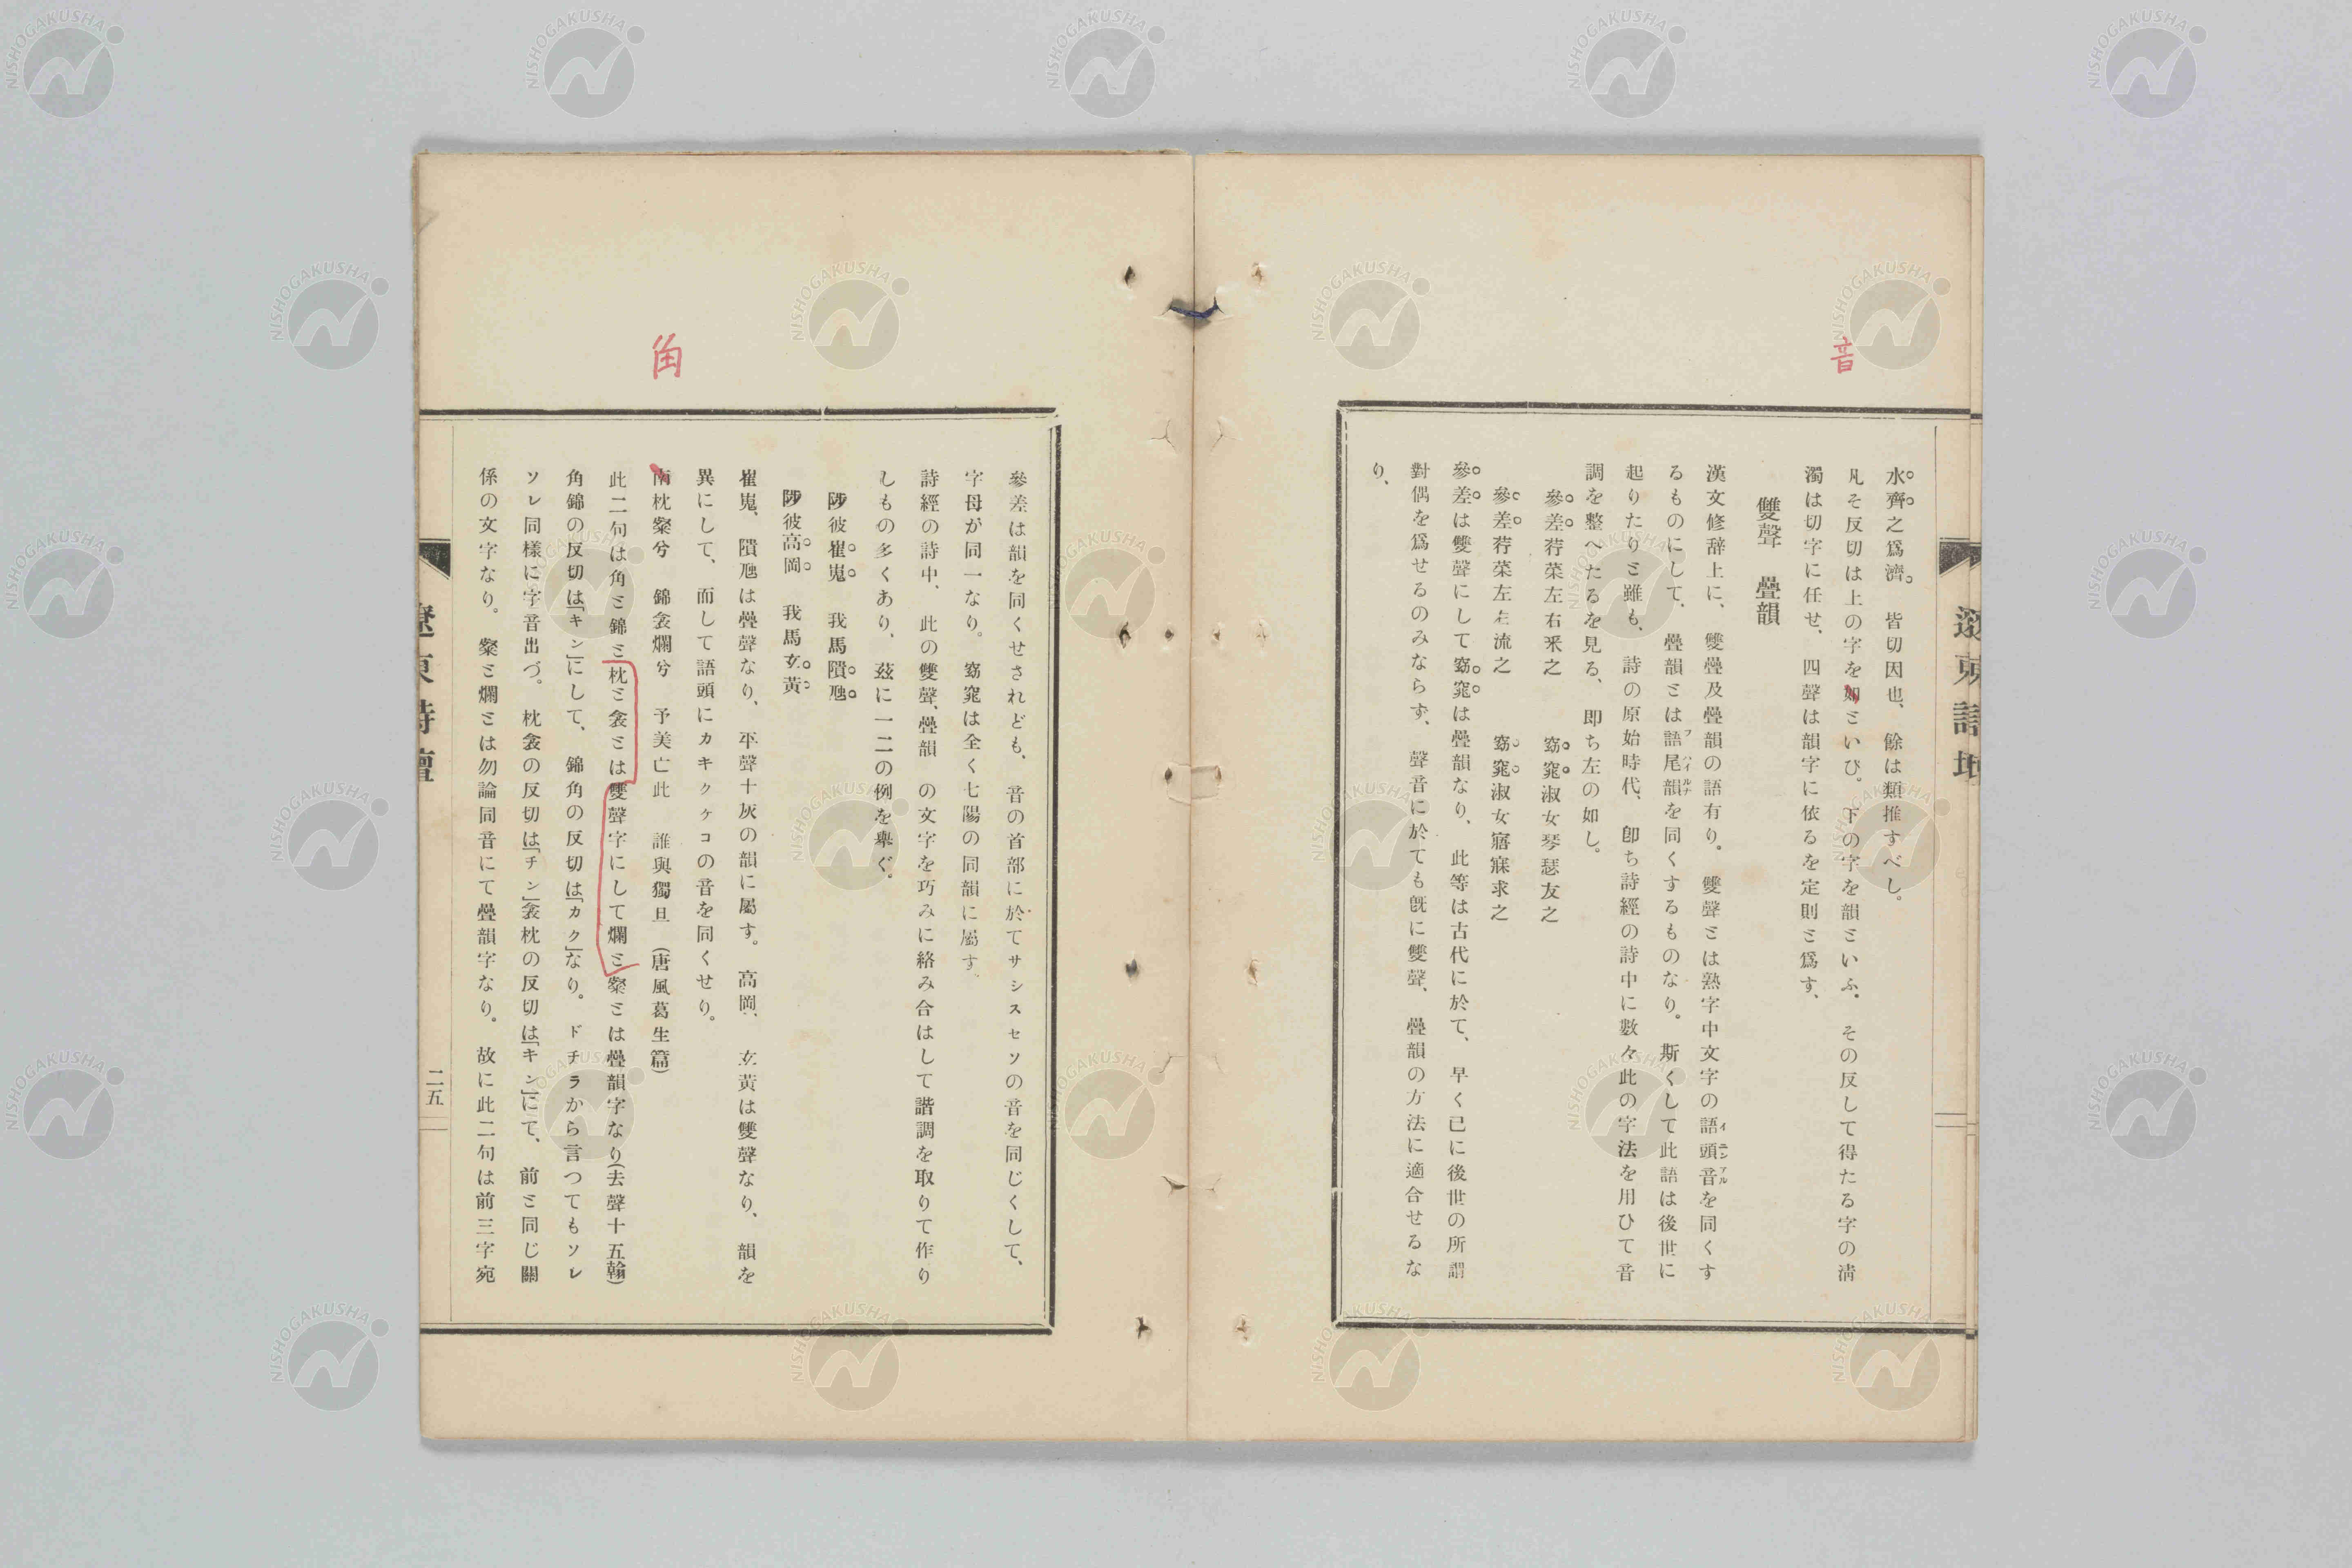 音
水齊之爲濟。 皆切因也、餘は類推すべし。
凡そ反切は上の字を如ミいひ。下の字を韻ミいふ。その反して得たる字の淸
濁は切字に任せ、四聲は韻字に依るを定則ミ爲す、
雙聲 疊韻
漢文修辞上に、雙疊及疊韻の語有り。雙聲ミは熟字中文字の語頭音を同くす
るものにして、疊韻ミは語尾韻を同くするものなり。斯くして此語は後世に
起りたりミ雖も、詩の原始時代、卽ち詩經の詩中に數々此の字法を用ひて音
調を整へたるを見る、卽ち左の如し。
參差荇菜左右采之 窈窕淑女琴瑟友之
參差荇菜左右流之 窈窕淑女寤寐求之
參差は雙聲にして窈窕は疊韻なり、此等は古代に於て、早く已に後世の所謂
對偶を爲せるのみならず、聲音に於ても旣に雙聲、疊韻の方法に適合せるな
り、
角
參差は韻を同くせされども、音の首部に於てサシスセソの音を同じくして、
字母が同一なり。窈窕は全く七陽の同韻に屬す、
詩經の詩中、此の雙聲、疊韻 の文字を巧みに絡み合はして諧調を取りて作り
しもの多くあり、玆に一二の例を擧ぐ。
陟彼崔嵬 我馬隤虺
陟彼高岡 我馬玄黃
崔嵬、隤虺は疊聲なり、平聲十灰の韻に屬す。高岡、玄黃は雙聲なり、韻を
異にして、而して語頭にカキクケコの音を同くせり。
南枕粲兮 錦衾爛兮 予美亡此 誰與獨旦 (唐風葛生篇)
此二句は角ミ錦ミ枕ミ衾ミは雙聲字にして爛ミ粲ミは疊韻字なり(去聲十五翰)
角錦の反切は「キン」にして、錦角の反切は「カク」なり。ドチラから言つてもソレ
ソレ同樣に字音出づ。枕衾の反切は「チン」衾枕の反切は「キン」にて、前ミ同じ關
係の文字なり。粲ミ爛ミは勿論同音にて疊韻字なり。故に此二句は前三字宛
二五